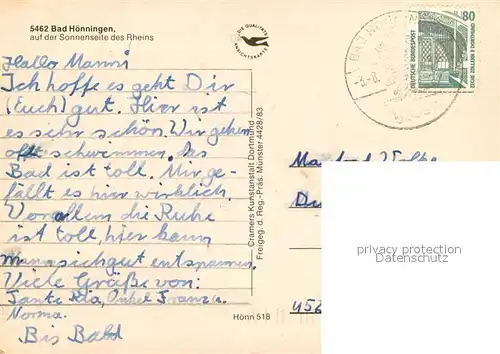 5462 Bad Hönningen,
auf der Sonnenseite des Rheins
DIE QUALITÄTS
ANSICHTSKARTE
80
DEUTSCHE BUNDESPOST
ZECHE ZOLLERN II DORTMUND
Hallo Manni
Ich hoffe es geht Dir
(Euch) gut. Hier ist
es sehr schön. Wir gehen
oft schwimmen. Das
Bad ist toll. Mir ge-
fällt es hier wirklich.
Vor allem die Ruhe
ist toll, hier kann
man sich gut entspannen.
Viele Grüße von:
Tante Ida, Onkel Franz u.
Norma.
Bis Bald
Cramers Kunstanstalt Dortmund
Freigeg. d. Reg.-Präs. Münster 4428/83
Hönn 518
privacy protection
watermark
452